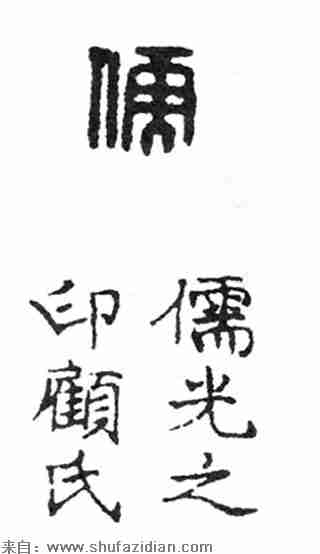 儒
儒光之
印顧氏
来自：www.shufazidian.com